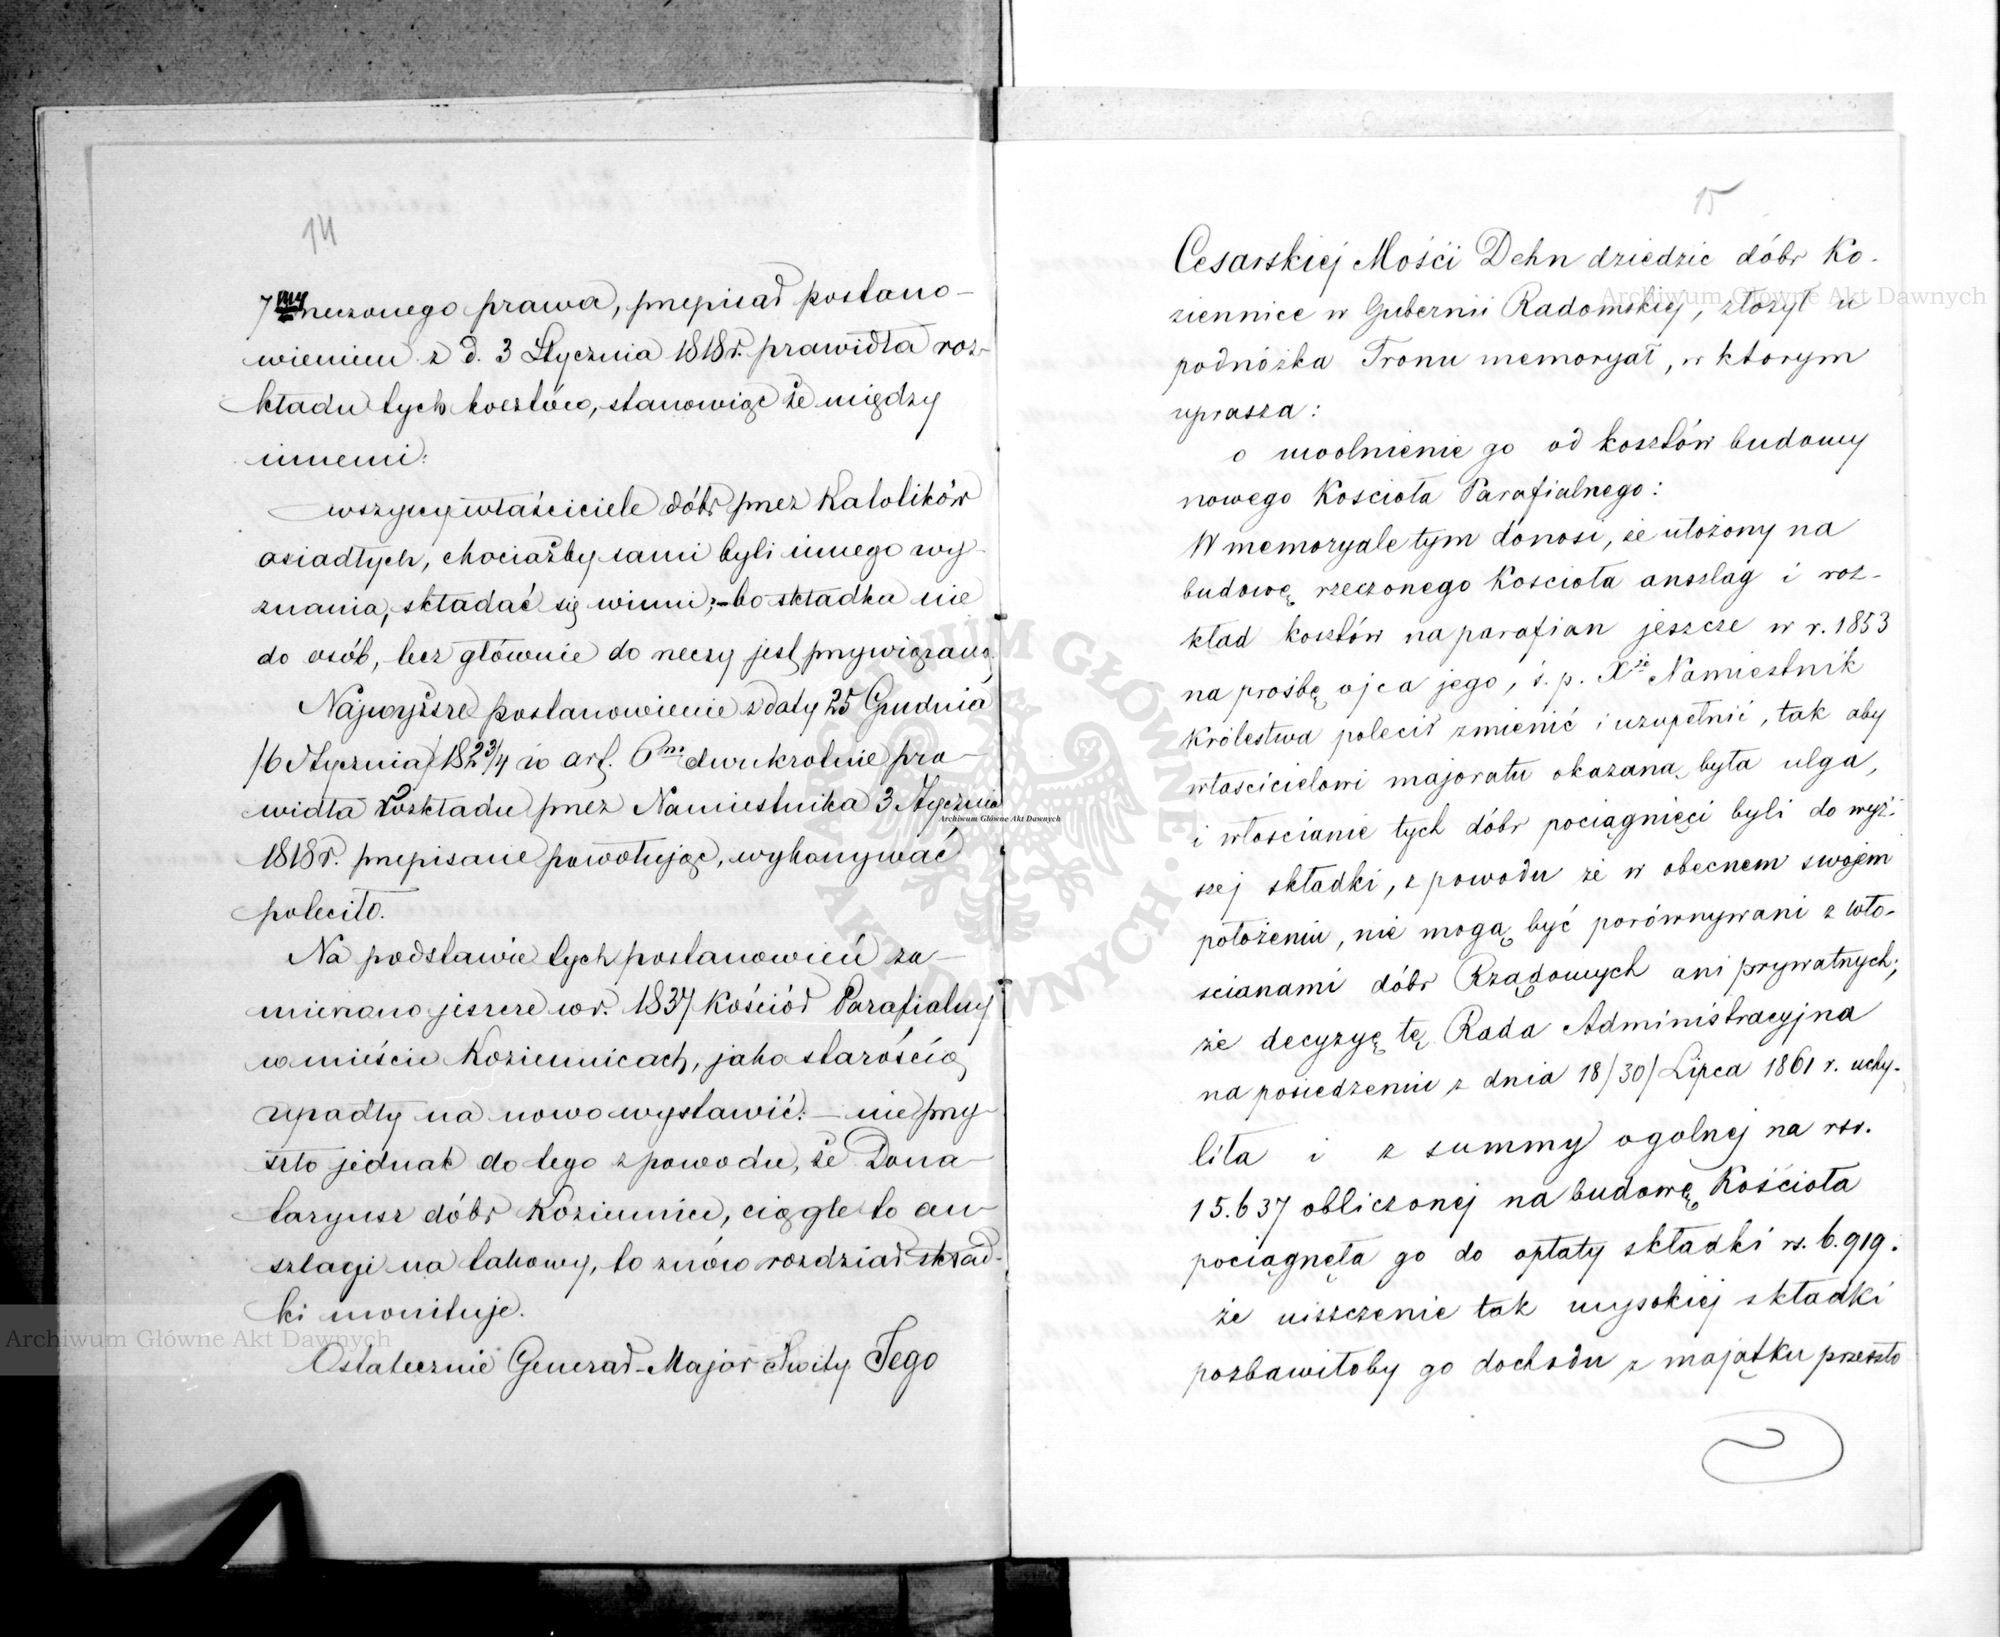 14
7my rzeczonego prawa, przepisał postano-
wieniem z d. 3 Stycznia 1818 r. prawidła roz-
kładu tych kosztów, stanowiąc że między
innemi:
wszyscy właściciele dóbr przez Katolików
osiadłych, chociażby sami byli innego wy-
znania, składać się winni; – bo składka nie
do osób, lecz głównie do rzeczy jest przywiązaną
Najwyższe postanowienie z daty 25 Grudnia
/6 Stycznia/ 1823/4 w art. 6m dwukrotnie pra-
widła rozkładu przez Namiestnika 3 Stycznia
1818 r. przepisane powołując, wykonywać
poleciło.
Na podstawie tych postanowień za-
mierzano jeszcze w r. 1837 Kościół Parafialny
w mieście Kozienicach, jako starością
upadły na nowo wystawić: – nie przy-
szło jednak do tego z powodu, że Dona-
taryusz dóbr Kozienice, ciągle to an-
szlagi na takowy, to znów rozdział skład-
ki monituje.
Ostatecznie Generał-Major Świty Jego
15
Cesarskiej Mości Dehn dziedzic dóbr Ko-
zienice w Gubernii Radomskiej, złożył u
podnóżka Tronu memoryał, w ktorym
uprasza:
o uwolnienie go od kosztów budowy
nowego Kościoła Parafialnego:
W memoryale tym donosi, że ułożony na
budowę rzeczonego Kościoła anszlag i roz-
kład kosztów na parafian jeszcze w r. 1853
na prośbę ojca jego, ś. p. Xże Namiestnik
Królestwa polecił zmienić i uzupełnić, tak aby
właścicielowi majoratu okazaną była ulga,
i włościanie tych dóbr pociągnięci byli do wyż-
szej składki, z powodu że w obecnem swojem
położeniu, nie mogą być porównywani z wło-
scianami dóbr Rządowych ani prywatnych;
że decyzyę tę Rada Administracyjna
na posiedzeniu z dnia 18/30/ Lipca 1861 r. uchy-
liła i z summy ogolnej na rsr.
15.637 obliczonej na budowę Kościoła
pociągnęła go do opłaty składki rs. 6.919.
że uiszczenie tak wysokiej składki
pozbawiłoby go dochodu z majątku przeszło
Archiwum Główne Akt Dawnych
Archiwum Główne Akt Dawnych
Archiwum Główne Akt Dawnych
ARCHIWUM GŁÓWNE AKT DAWNYCH